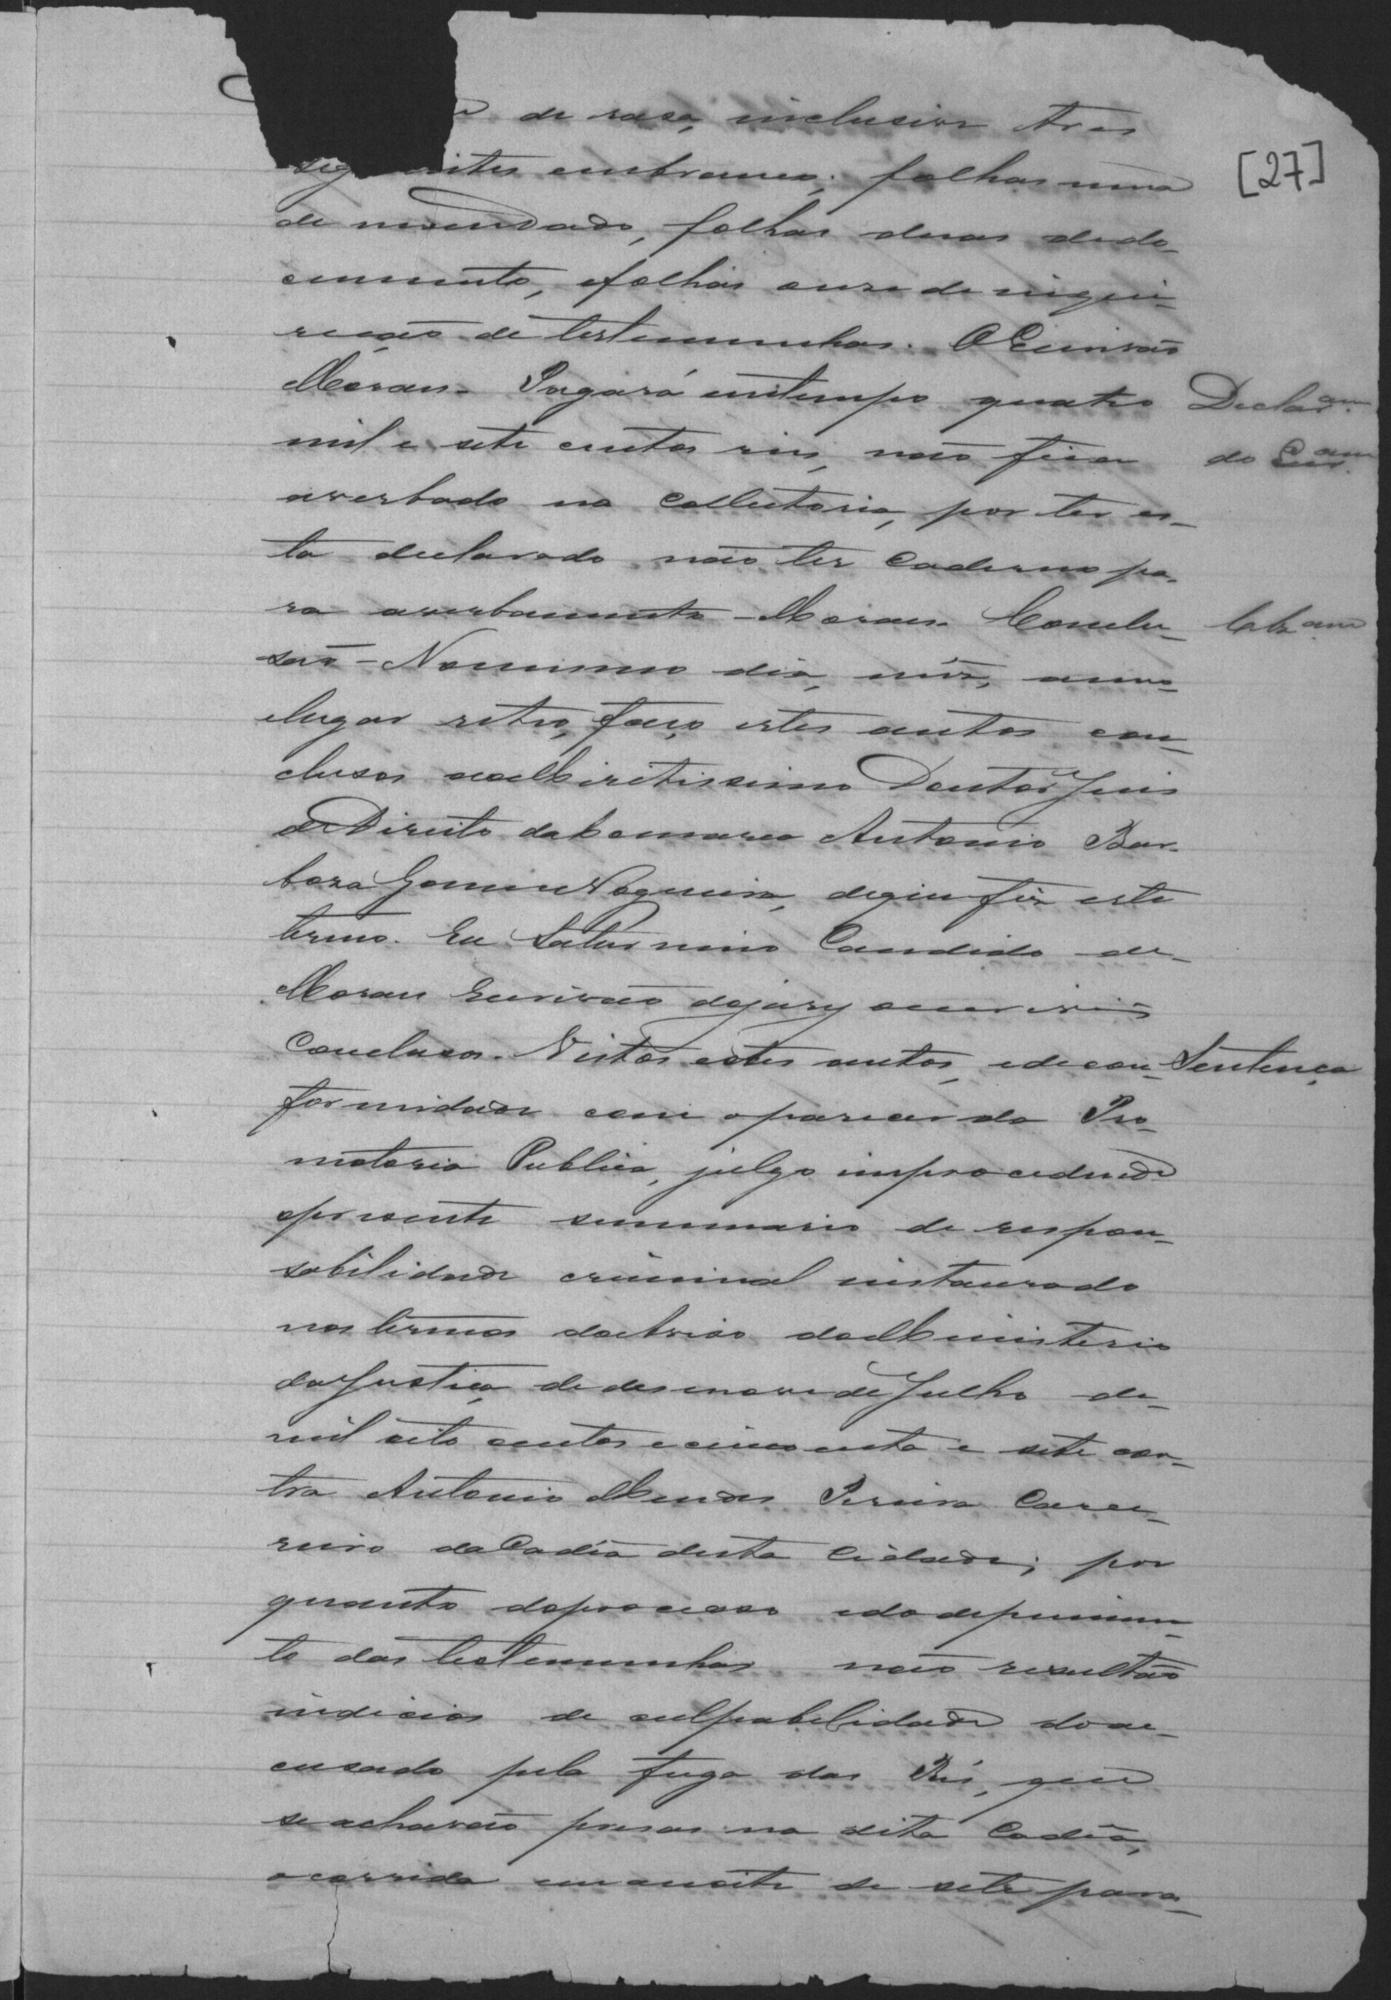 de rasa, inclusive tres
[27]
seguintes embranco; folhas uma
de mandado, folhas duas dedo-
cumento, efolhas onze de inqui-
rição de testemunhas. O Escrivão
Moraes. Pagará emtempo quatro
Declar.am
mil e sete centos reis, não fica
do Escr.am
averbado na Collectoria, por ter es-
ta declarado não ter Caderno pa-
ra averbamento - Moraes. Conclu-
Clz.am
são - Nomesmo dia, mez, anno
elugar retro, faço estes autos con-
clusos aoMeritissimo Doutor Juis
deDireito daComarca Antonio Bar-
boza Gomes Nogueira, dequefiz este
termo. Eu Saturnino Candido de-
Moraes Escrivão dojury oescrevi
Conclusos. Vistos estes autos, edecon-
Sentença
formidade com oparecer da Pro-
motoria Publica, julgo improcedente
opresente summario de respon-
sabilidade criminal instaurado
nos termos doaviso doMinisterio
daJustiça de desenove deJulho de-
mil oito centos ecincoenta e sete con-
tra Antonio Mendes Pereira Carce-
reiro daCadêa desta Cidade; por
quanto doprocesso edodepoimen-
to das testemunhas não resultão
indicios de culpabilidade doac-
cusado pela fuga dos Réos, que
seachavão presos na dita Cadêa,
ocorrida emanoite de sete para-